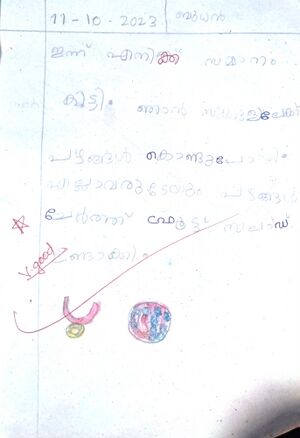 11-10-2023 ബുധൻ
ഇന്ന് എനിക്ക് സമ്മാനം
കിട്ടി. ഞാൻ സ്കൂളിലേക്ക്
പഴങ്ങൾ കൊണ്ടുപോയി.
എല്ലാവരുടെയും പഴങ്ങൾ
ചേർത്ത് ഫ്രൂട്ട് സലാഡ്
ഉണ്ടാക്കി.
V.good